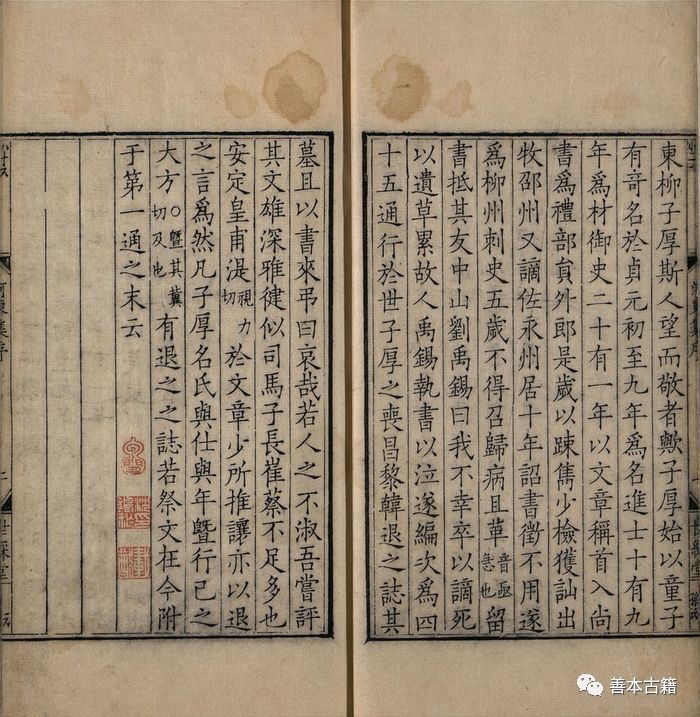 東柳子厚斯人望而敬者歟子厚始以童子
有奇名於貞元初至九年爲名進士十有九
年爲材御史二十有一年以文章稱首入尚
書爲禮部負外郎是歲以踈雋少檢獲訕出
牧邵州又謫佐永州居十年詔書徵不用遂
爲柳州刺史五歲不得召歸病且革音亟急也留
書抵其友中山劉禹錫曰我不幸卒以謫死
以遺草累故人禹錫執書以泣遂編次爲四
十五通行於世子厚之喪昌黎韓退之誌其
墓且以書來弔曰哀哉若人之不淑吾嘗評
其文雄深雅健似司馬子長崔蔡不足多也
安定皇甫湜視力切於文章少所推讓亦以退
之言爲然凡子厚名氏與仕與年暨行己之
大方○暨其冀切及也有退之之誌若祭文在今附
于第一通之末云
世綵堂
善本古籍